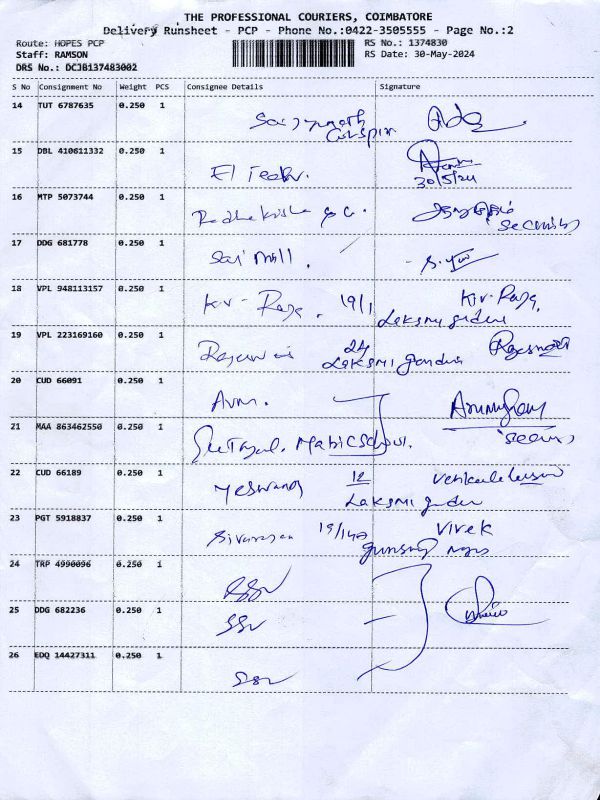 THE PROFESSIONAL COURIERS, COIMBATORE
Delivery Runsheet - PCP - Phone No.:0422-3505555 - Page No.:2
Route: HOPES PCP
RS No.: 1374830
Staff: RAMSON
RS Date: 30-May-2024
DRS No.: DCJB137483002
S No Consignment No Weight PCS Consignee Details Signature
14 TUT 6787635 0.250 1
15 DBL 410611332 0.250 1
El Tech.
30/5/24
16 MTP 5073744 0.250 1
Security
17 DDG 681778 0.250 1 Sai Mill.
18 VPL 948113157 0.250 1
Kv - Raja. 19/1 Kv. Raja,
Laksmi garden
19 VPL 223169160 0.250 1
24
Laksmi garden
20 CUD 66091 0.250 1 Avm.
21 MAA 863462550 0.250 1
Matric School.
22 CUD 66189 0.250 1 Yeswant 12
Laksmi garden
23 PGT 5918837 0.250 1 Vivek
24 TRP 4990096 0.250 1 SSV
25 DDG 682236 0.250 1 SSV
26 EDQ 14427311 0.250 1 SSV